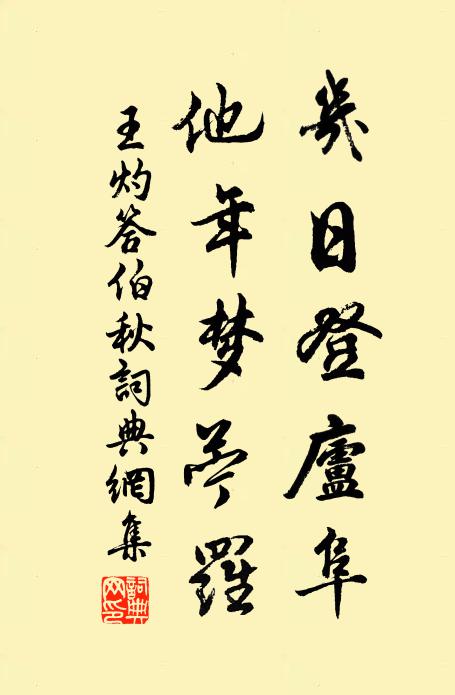 幾日登廬阜
他年梦苧羅
王灼答伯秋詞典網集
詞典
网印